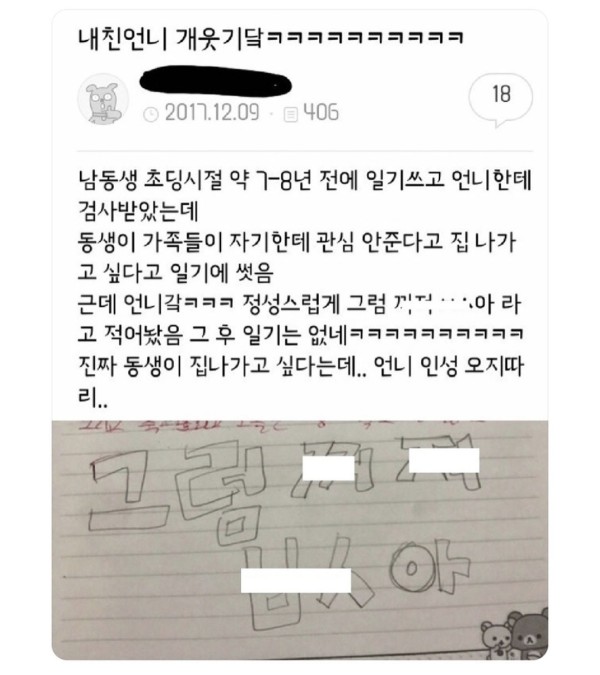 내친언니 개웃기닼ㅋㅋㅋㅋㅋㅋㅋㅋㅋㅋ
18
2017.12.09 · 406
남동생 초딩시절 약 7-8년 전에 일기쓰고 언니한테
검사받았는데
동생이 가족들이 자기한테 관심 안준다고 집 나가
고 싶다고 일기에 썻음
근데 언니갘ㅋㅋㅋ 정성스럽게 그럼 아 라
고 적어놨음 그 후 일기는 없네ㅋㅋㅋㅋㅋㅋㅋㅋㅋㅋ
진짜 동생이 집나가고 싶다는데.. 언니 인성 오지따
리..
그럼
아